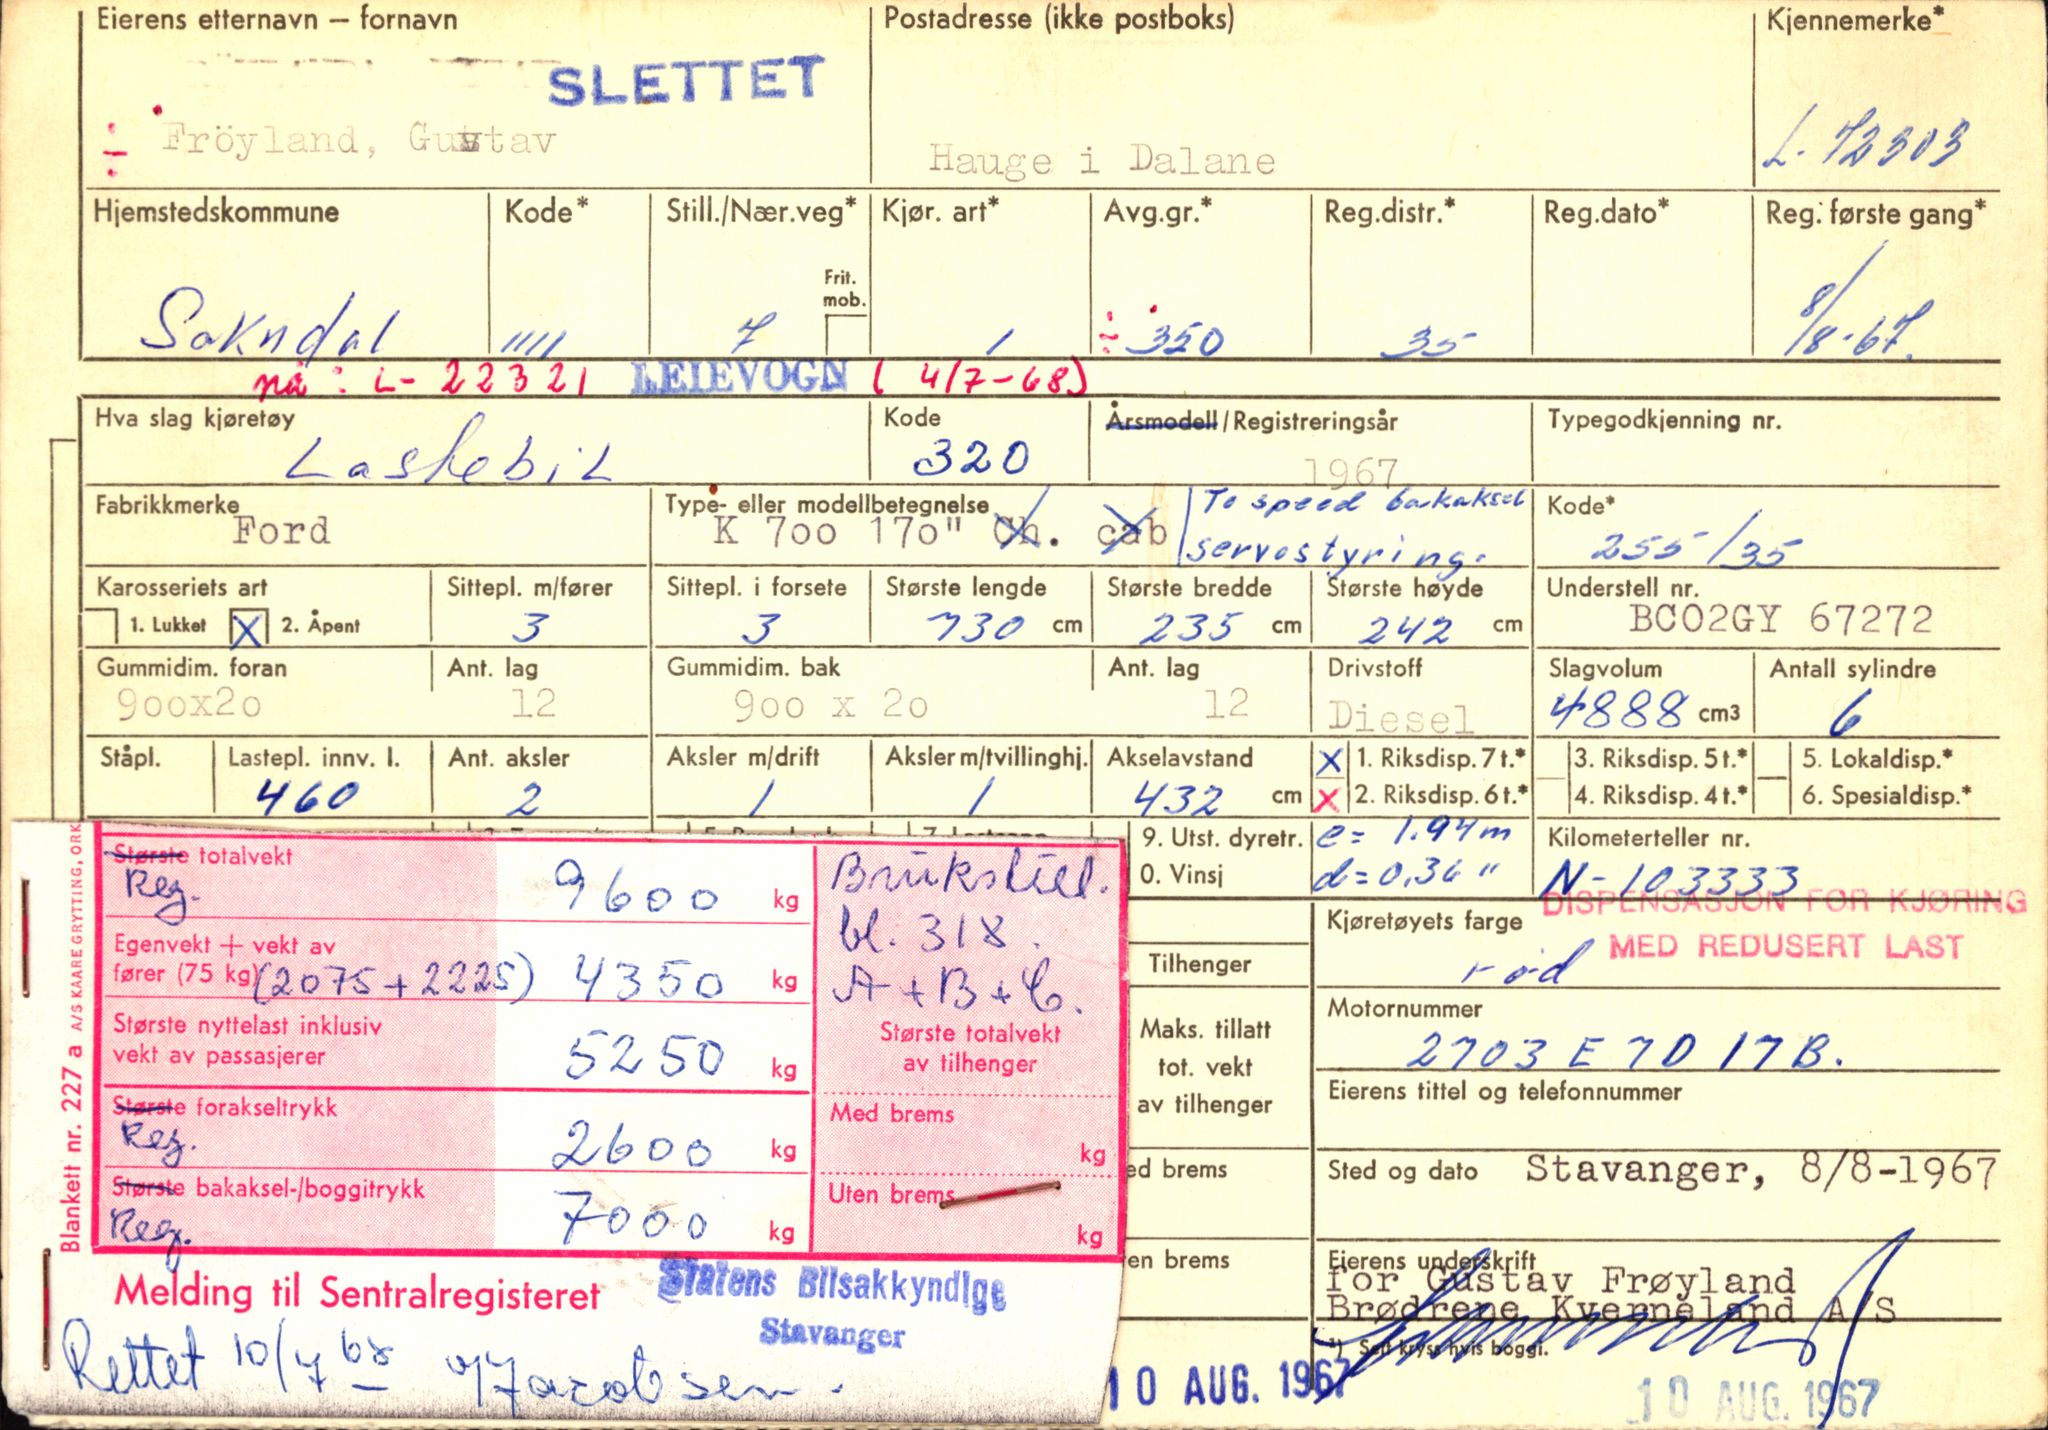 Eierens etternavn – fornavn
Postadresse (ikke postboks)
Kjennemerke*
SLETTET
Fröyland, Gustav
Hauge i Dalane
L-72303
Hjemstedskommune
Kode*
Still./Nær.veg*
Kjør. art*
Avg.gr.*
Reg.distr.*
Reg.dato*
Reg. første gang*
Frit. mob.
Sokndal
1111
7
1
350
35
8/8-67.
nå: L-22321 LEIEVOGN (4/7-68)
Hva slag kjøretøy
Kode
Årsmodell/Registreringsår
Typegodkjenning nr.
Lastebil
320
1967
Fabrikkmerke
Type- eller modellbetegnelse
To speed bakaksel
Kode*
Ford
K 700 170" Ch. cab
servostyring.
255/35
Karosseriets art
Sittepl. m/fører
Sittepl. i forsete
Største lengde
Største bredde
Største høyde
Understell nr.
1. Lukket X 2. Åpent
3
3
730 cm
235 cm
242 cm
BC02GY 67272
Gummidim. foran
Ant. lag
Gummidim. bak
Ant. lag
Drivstoff
Slagvolum
Antall sylindre
900x20
12
900 x 20
12
Diesel
4888 cm3
6
Ståpl.
Lastepl. innv. l.
Ant. aksler
Aksler m/drift
Aksler m/tvillinghj.
Akselavstand
X 1. Riksdisp. 7 t.*
3. Riksdisp. 5 t.*
5. Lokaldisp.*
460
2
1
1
432 cm
X 2. Riksdisp. 6 t.*
4. Riksdisp. 4 t.*
6. Spesialdisp.*
9. Utst. dyretr.
e = 1.94 m
Kilometerteller nr.
0. Vinsj
d = 0,36 "
N-103333
DISPENSASJON FOR KJØRING
MED REDUSERT LAST
Største totalvekt
Reg.
9600 kg
Brukstill.
bl. 318.
A + B + C.
Egenvekt + vekt av
fører (75 kg) (2075 + 2225) 4350 kg
Største nyttelast inklusiv
vekt av passasjerer
5250 kg
Største totalvekt
av tilhenger
Største forakseltrykk
Reg.
2600 kg
Med brems
kg
Største bakaksel-/boggitrykk
Reg.
7000 kg
Uten brems
kg
Blankett nr. 227 a A/S KAARE GRYTTING, ORK
Melding til Sentralregisteret
Statens Bilsakkyndige
Stavanger
Rettet 10/7 68 Jacobsen.
Tilhenger
Maks. tillatt
tot. vekt
av tilhenger
ed brems
en brems
Kjøretøyets farge
rød
Motornummer
2703 E 7D 17B.
Eierens tittel og telefonnummer
Sted og dato Stavanger, 8/8-1967
Eierens underskrift
for Gustav Frøyland
Brødrene Kverneland A/S
¹) Sett kryss hvis boggi.
10 AUG. 1967
10 AUG. 1967